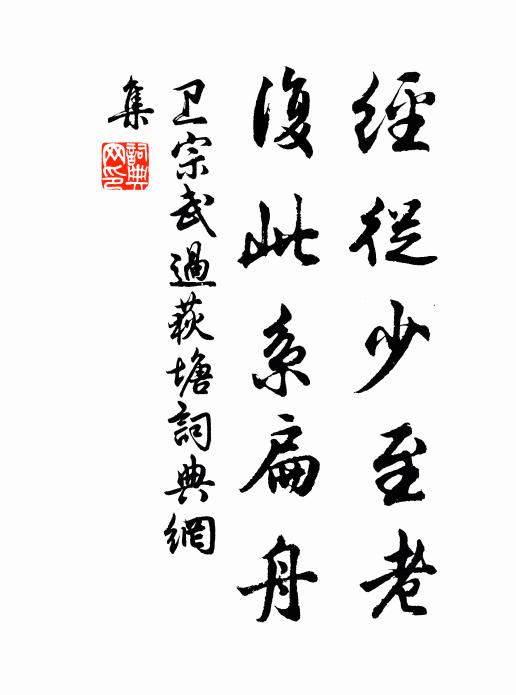 經從少至老
復此系扁舟
卫宗武過萩塘詞典網
集
詞典網印